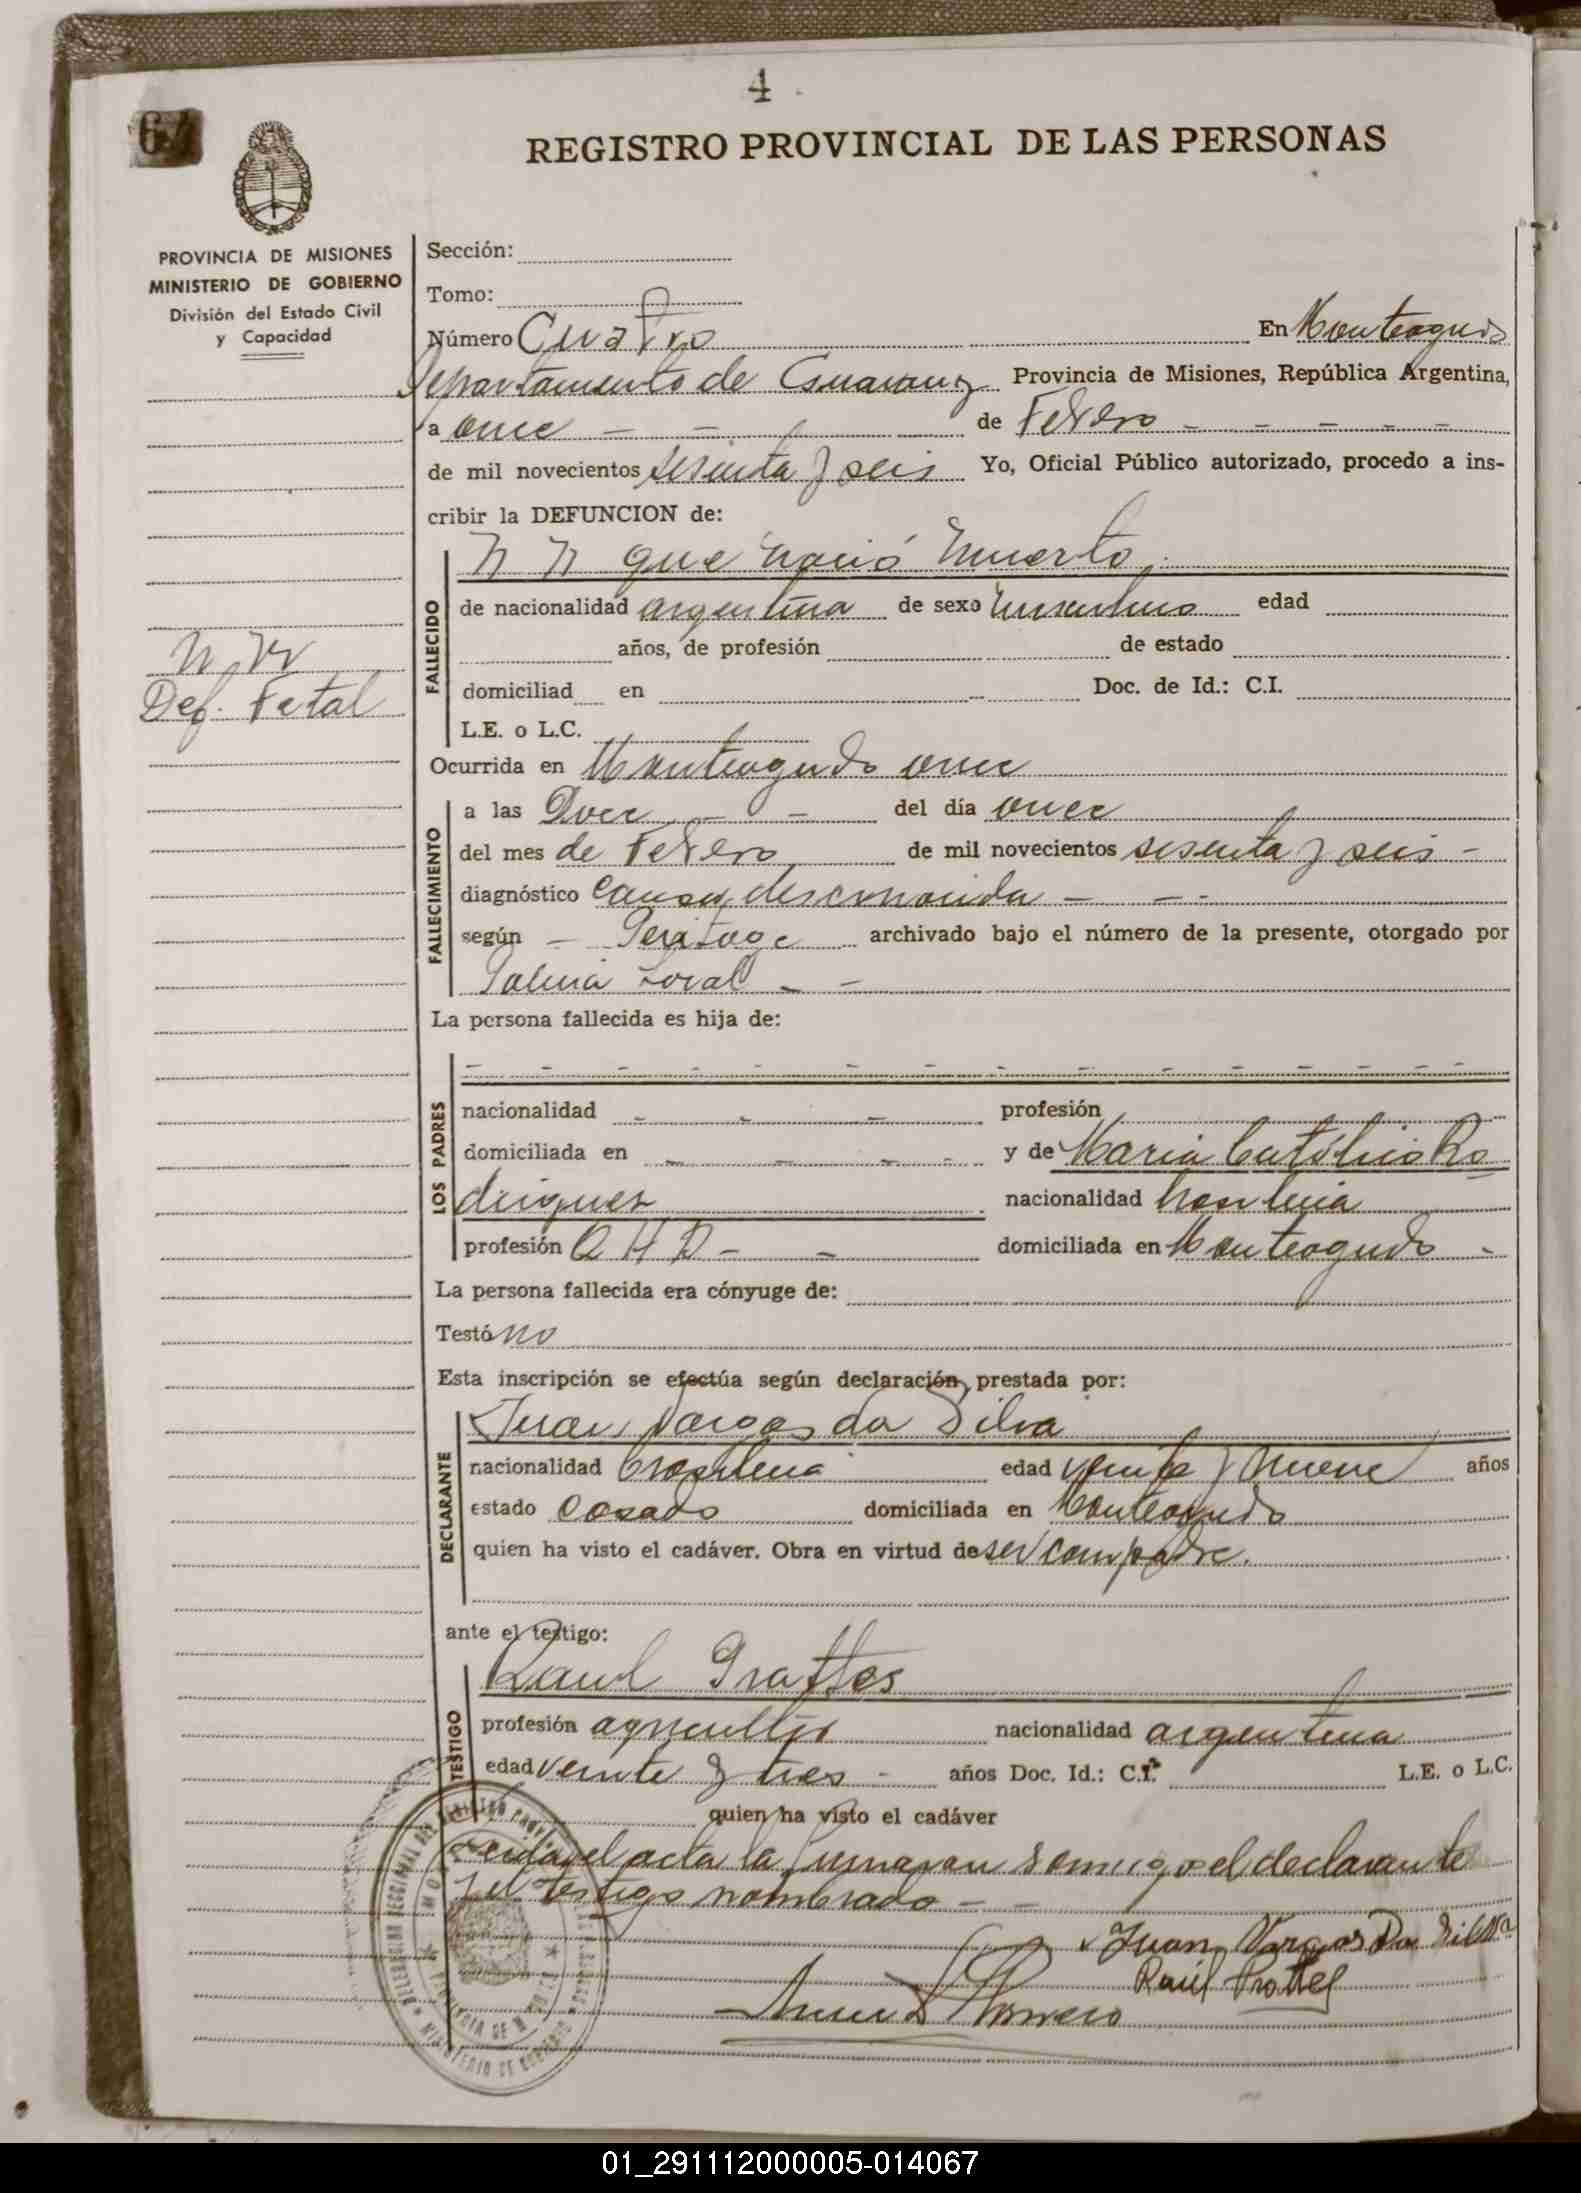 4
64
REGISTRO PROVINCIAL DE LAS PERSONAS
PROVINCIA DE MISIONES
MINISTERIO DE GOBIERNO
División del Estado Civil
y Capacidad
N. N.
Def. Fetal
Sección:
Tomo:
Número Cuatro En Monteagudo
Departamento de Guaraní Provincia de Misiones, República Argentina,
a once - - de Febrero - - - - -
de mil novecientos sesenta y seis Yo, Oficial Público autorizado, procedo a ins-
cribir la DEFUNCION de:
FALLECIDO
N N que nació muerto
de nacionalidad argentina de sexo masculino edad
años, de profesión de estado
domiciliad en Doc. de Id.: C.I.
L.E. o L.C.
Ocurrida en Monteagudo once
FALLECIMIENTO
a las Doce - - del día once
del mes de Febrero de mil novecientos sesenta y seis -
diagnóstico causa desconocida - - -
según - archivado bajo el número de la presente, otorgado por
Policía Local - -
La persona fallecida es hija de:
LOS PADRES
nacionalidad - - - profesión
domiciliada en - - - - y de Maria Católica Ro
driguez nacionalidad brasileña
profesión Q H D - - domiciliada en Monteagudo -
La persona fallecida era cónyuge de:
Testó no
Esta inscripción se efectúa según declaración prestada por:
DECLARANTE
Juan Vargas da Silva
nacionalidad brasileña edad veinte y nueve años
estado casado domiciliada en Monteagudo
quien ha visto el cadáver. Obra en virtud de ser compadre.
ante el testigo:
TESTIGO
Raul Prattes
profesión agricultor nacionalidad argentina
edad veinte y tres - años Doc. Id.: C.I. L.E. o L.C.
quien ha visto el cadáver
Leida el acta la firmaron conmigo el declarante
y el testigo nombrado - -
Juan Vargas Da Silva
Raúl Prattes
01_291112000005-014067